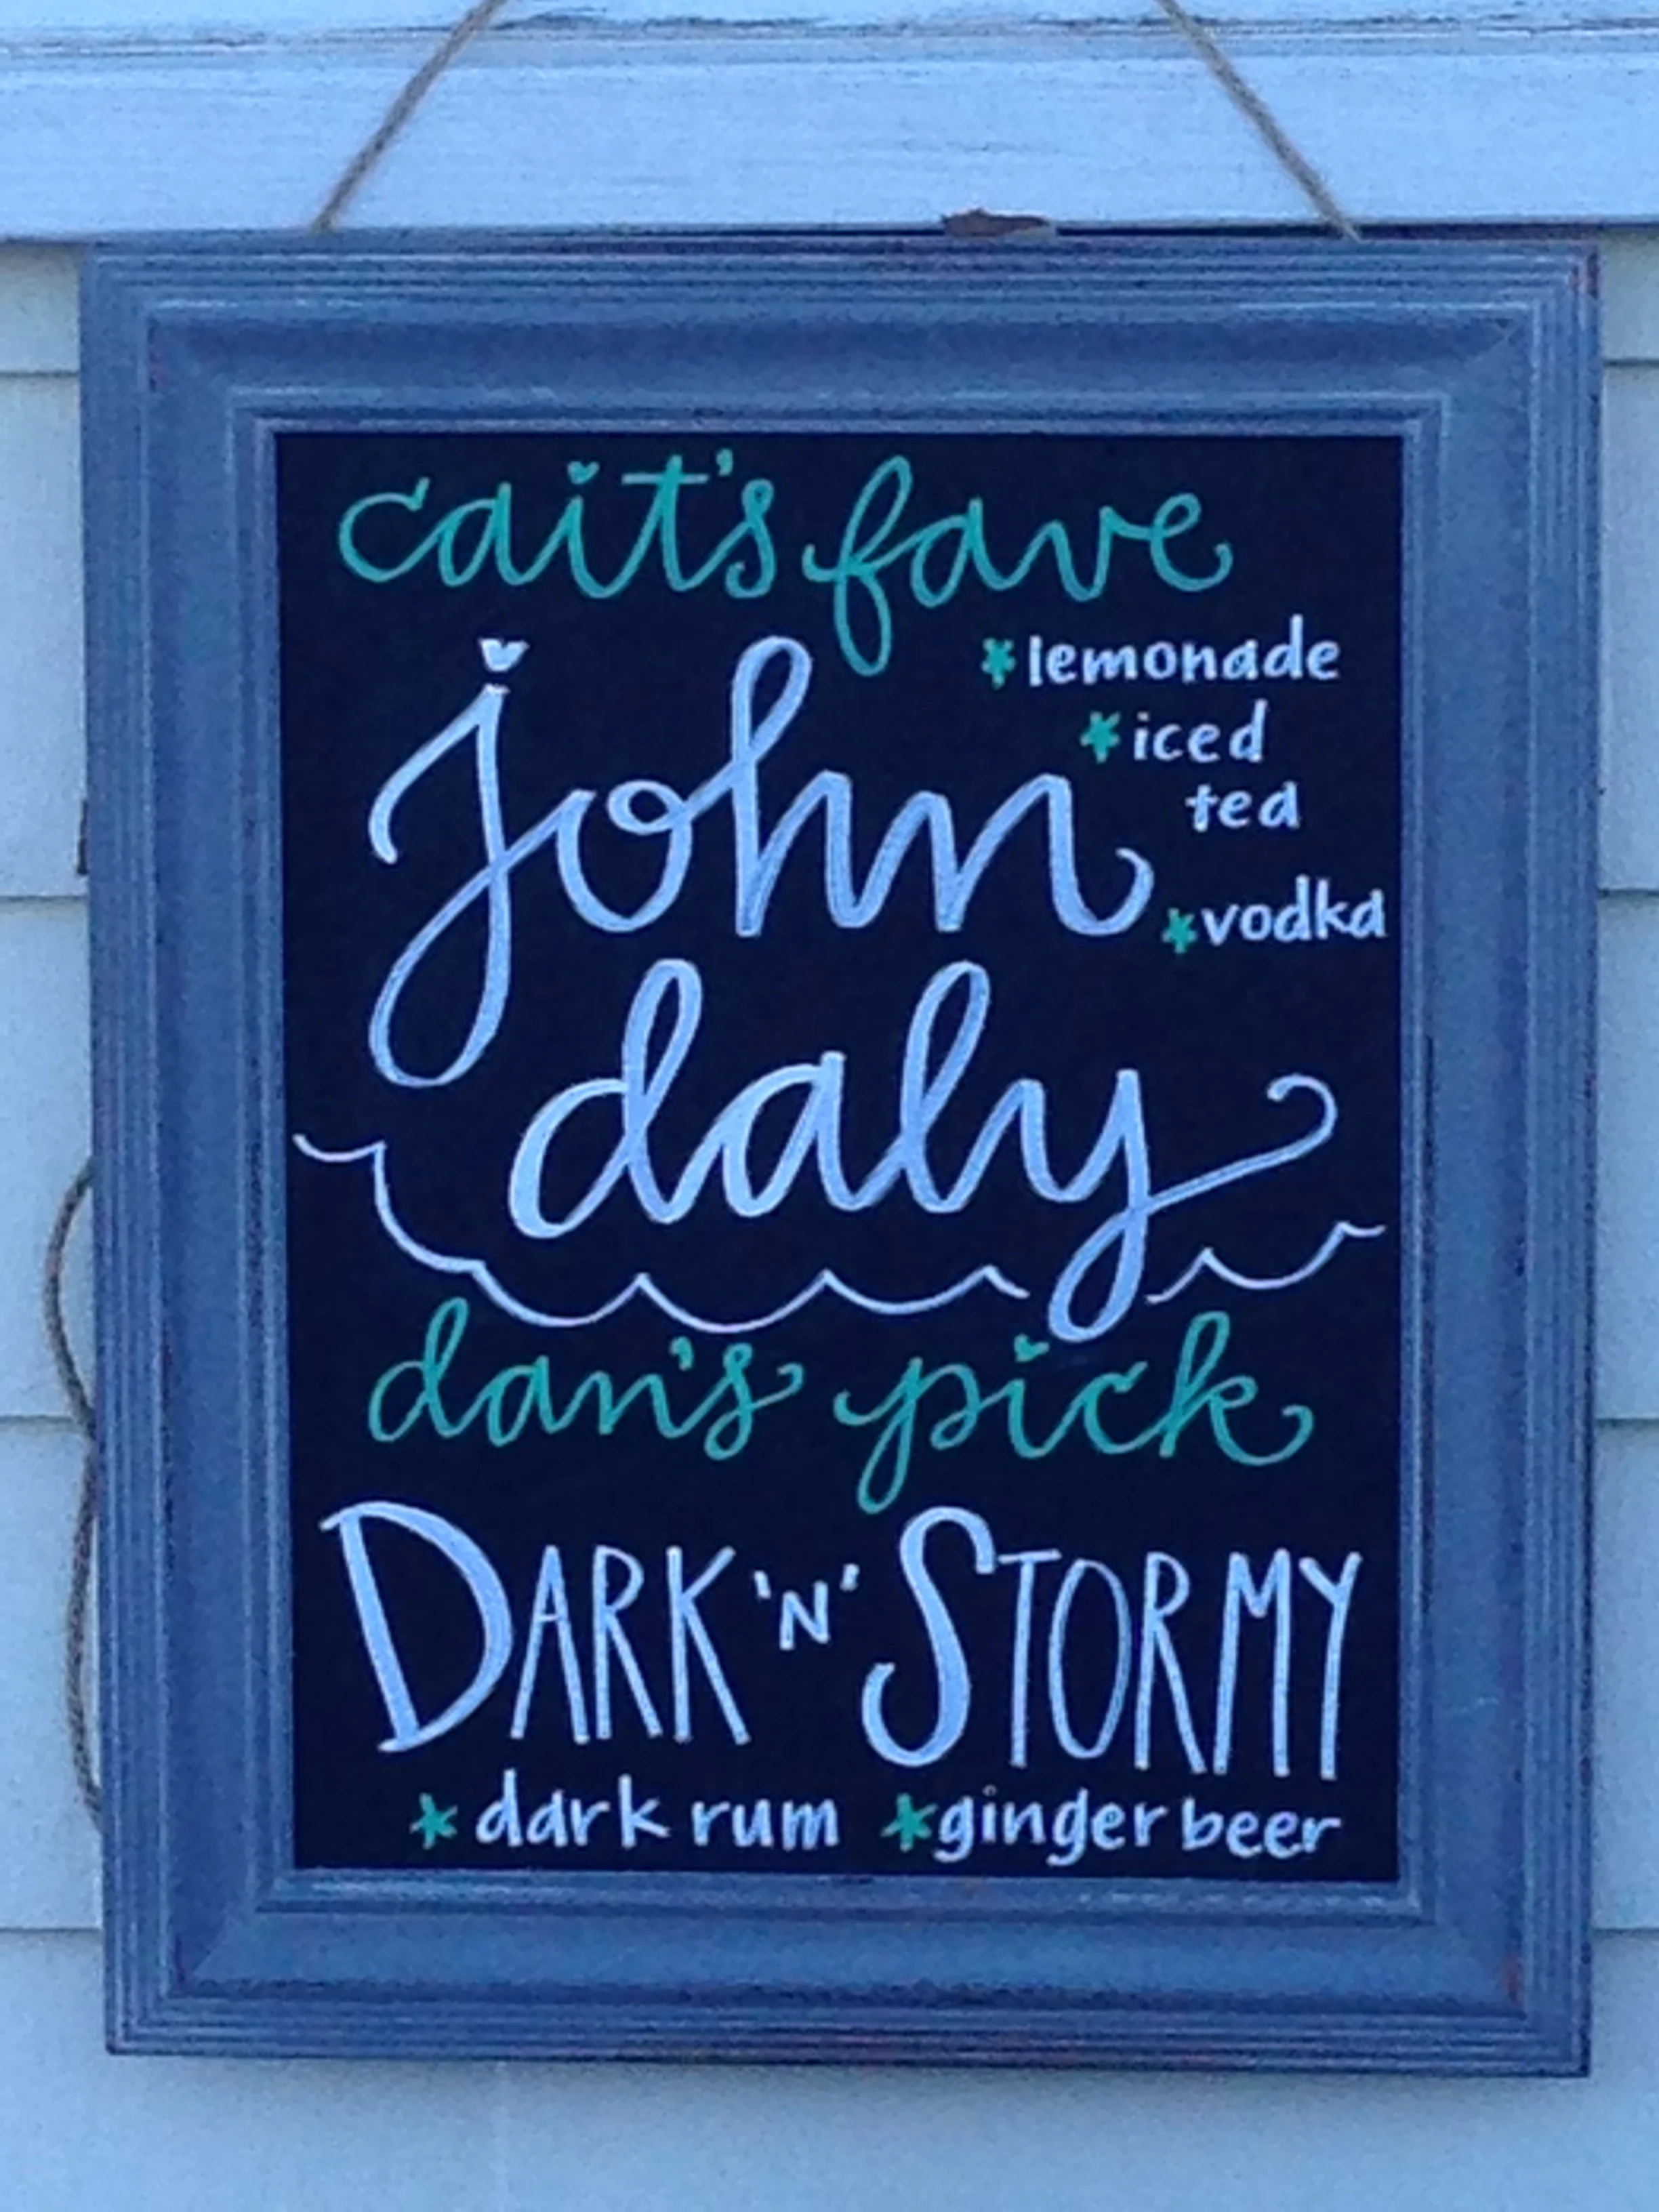 cait's fave
john
*lemonade
*iced
tea
*vodka
daly
dan's pick
DARK 'N' STORMY
*dark rum *ginger beer